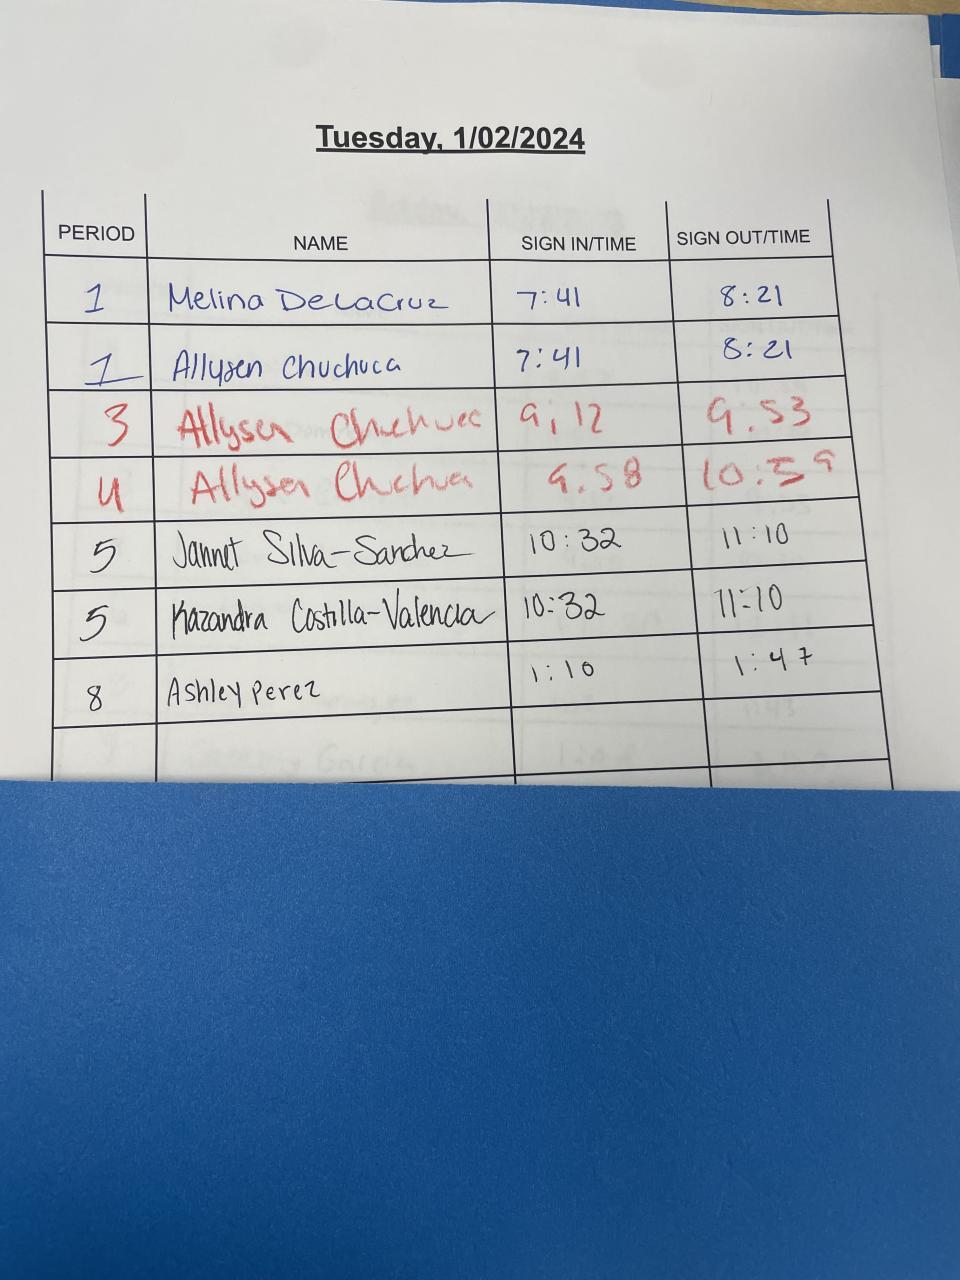 Tuesday, 1/02/2024
PERIOD NAME SIGN IN/TIME SIGN OUT/TIME
1 Melina DeLaCruz 7:41 8:21
1 Allysen Chuchuca 7:41 8:21
3 Allysen Chuchuec 9:12 9.53
4 Allysen Chuchua 9:58 10:39
5 Jannet Silva-Sanchez 10:32 11:10
5 Kazandra Costilla-Valencia 10:32 11:10
8 Ashley Perez 1:10 1:47